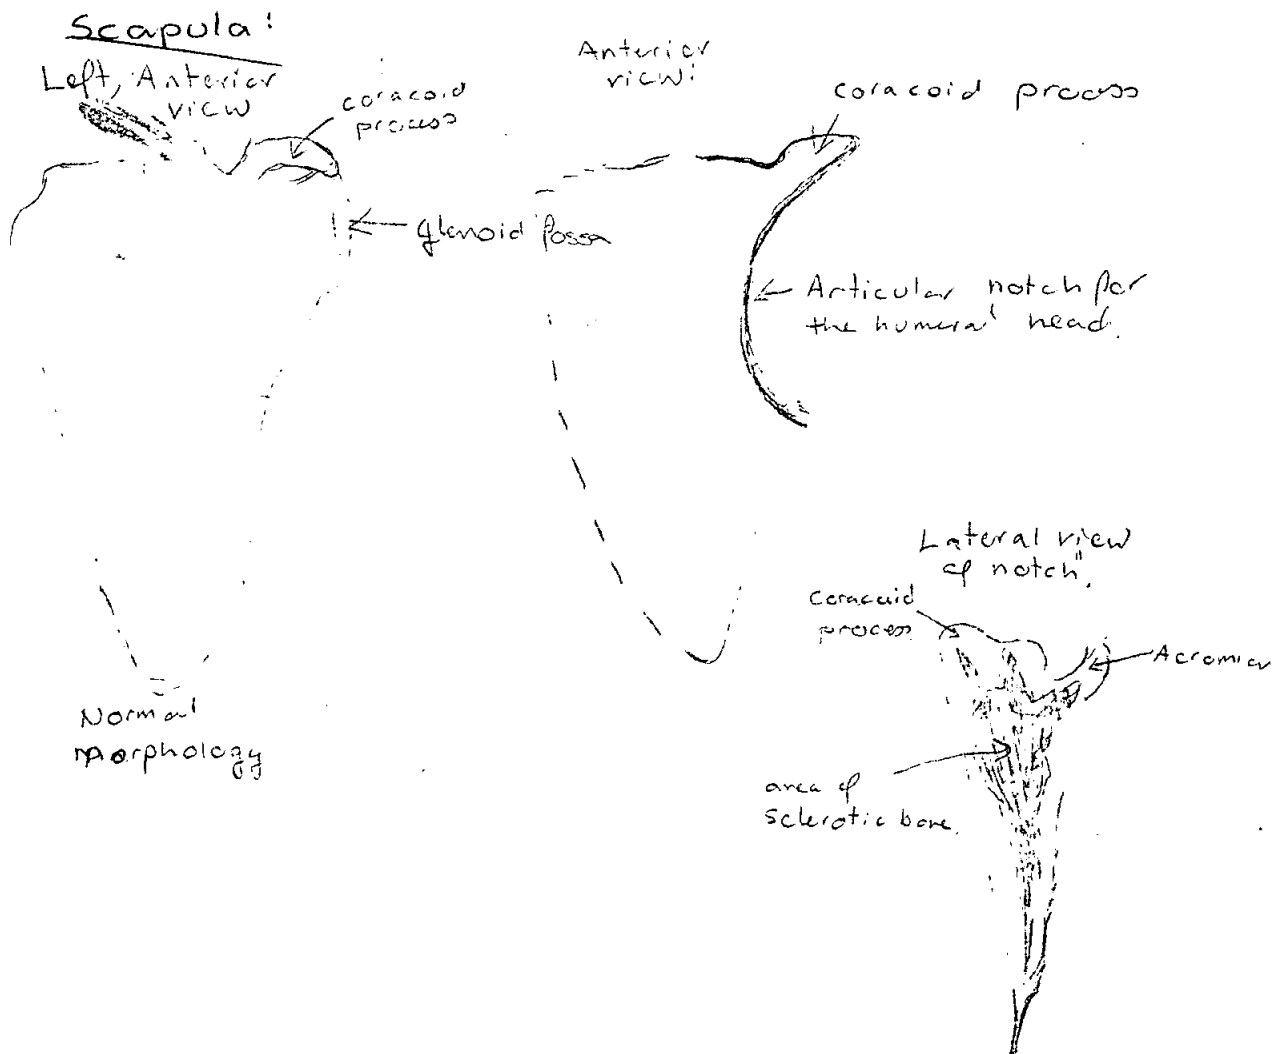 Scapula:
Left, Anterior
view
coracoid
process
glenoid fossa
Normal
morphology
Anterior
view:
coracoid process
Articular notch for
the humeral head.
Lateral view
of notch".
coracoid
process
Acromion
area of
sclerotic bone.